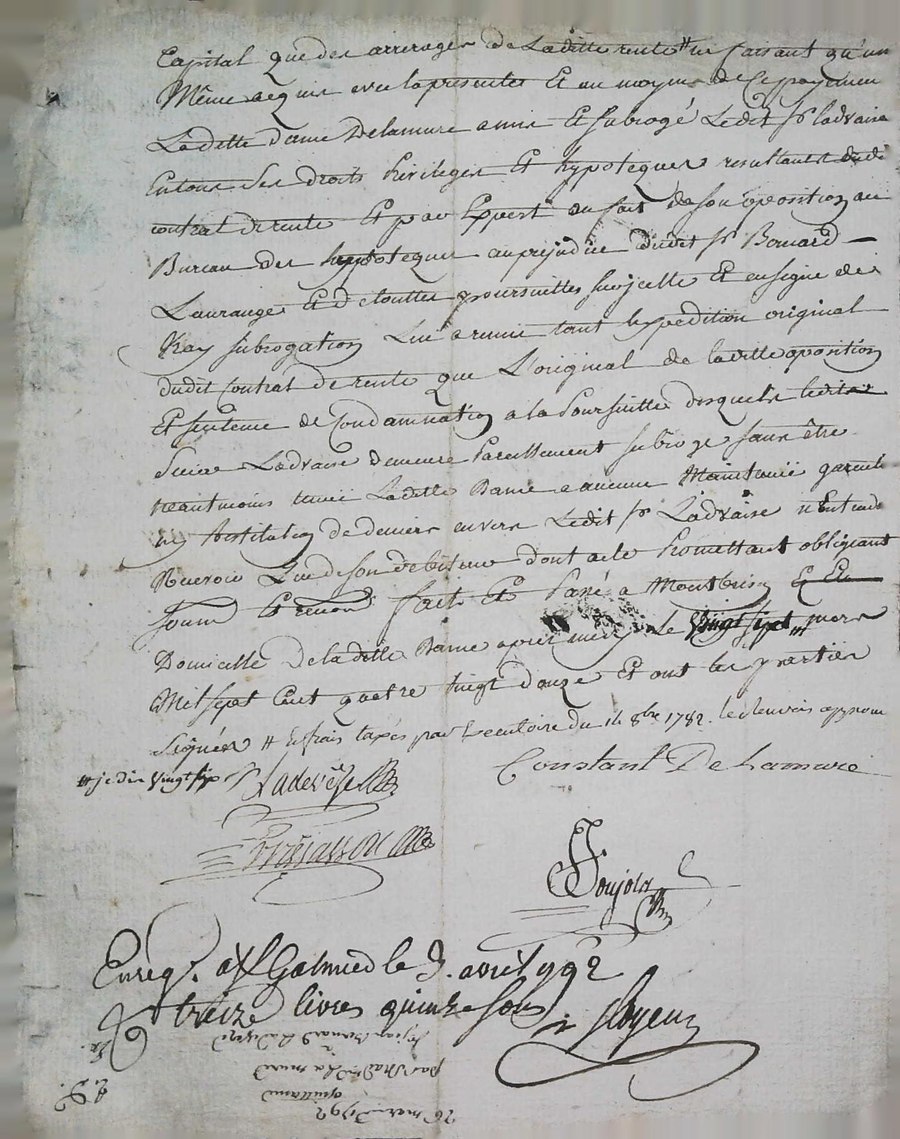 Capital que des arrerages de Laditte rente # ne faisant qu'un
Même acquis avec la presente Et au moyen de Ce payemen
Laditte dame Delamure a mis Et subrogé Ledit Sr ladvaise
En tous Ses droits Privileges Et hypoteques resultants dudi
contrat de rente Et par Exprest du fait de son oposition au
Bureau des hypoteques au prejudice dudit Sr Bernard
Laurange Et de touttes poursuittes sur jcelle Et en signe de
Vray subrogation Lui a remis tant l'expedition original
dudit Contrat de rente que L'original de laditte oposition
Et sentence de Condamnation a la Poursuitte desquels ledit
Sieur Ladvaise demeure Pareillement subrogé sans être
neantmoins tenue Laditte Dame a aucune Maintenue garentie
ny Restitution de deniers envers Ledit Sr Ladvaise n'Entend
Recevoir Que de son debiteur dont acte Promettant obligeant
soum Et renon fait Et Passé a Montbrison En
Domicille de laditte Dame apres midy le Vingt sept mars
Mil sept Cent quatre vingt douze Et ont les partiés
Signées # Et frais taxés par Executoire du 14 8bre 1782.
# je dis Vingt six Sr Ladevèse Constant De Lamure
Enregt. a St Galmier le 3. avril 1792
treize livres quinze sous
26 mars 1792